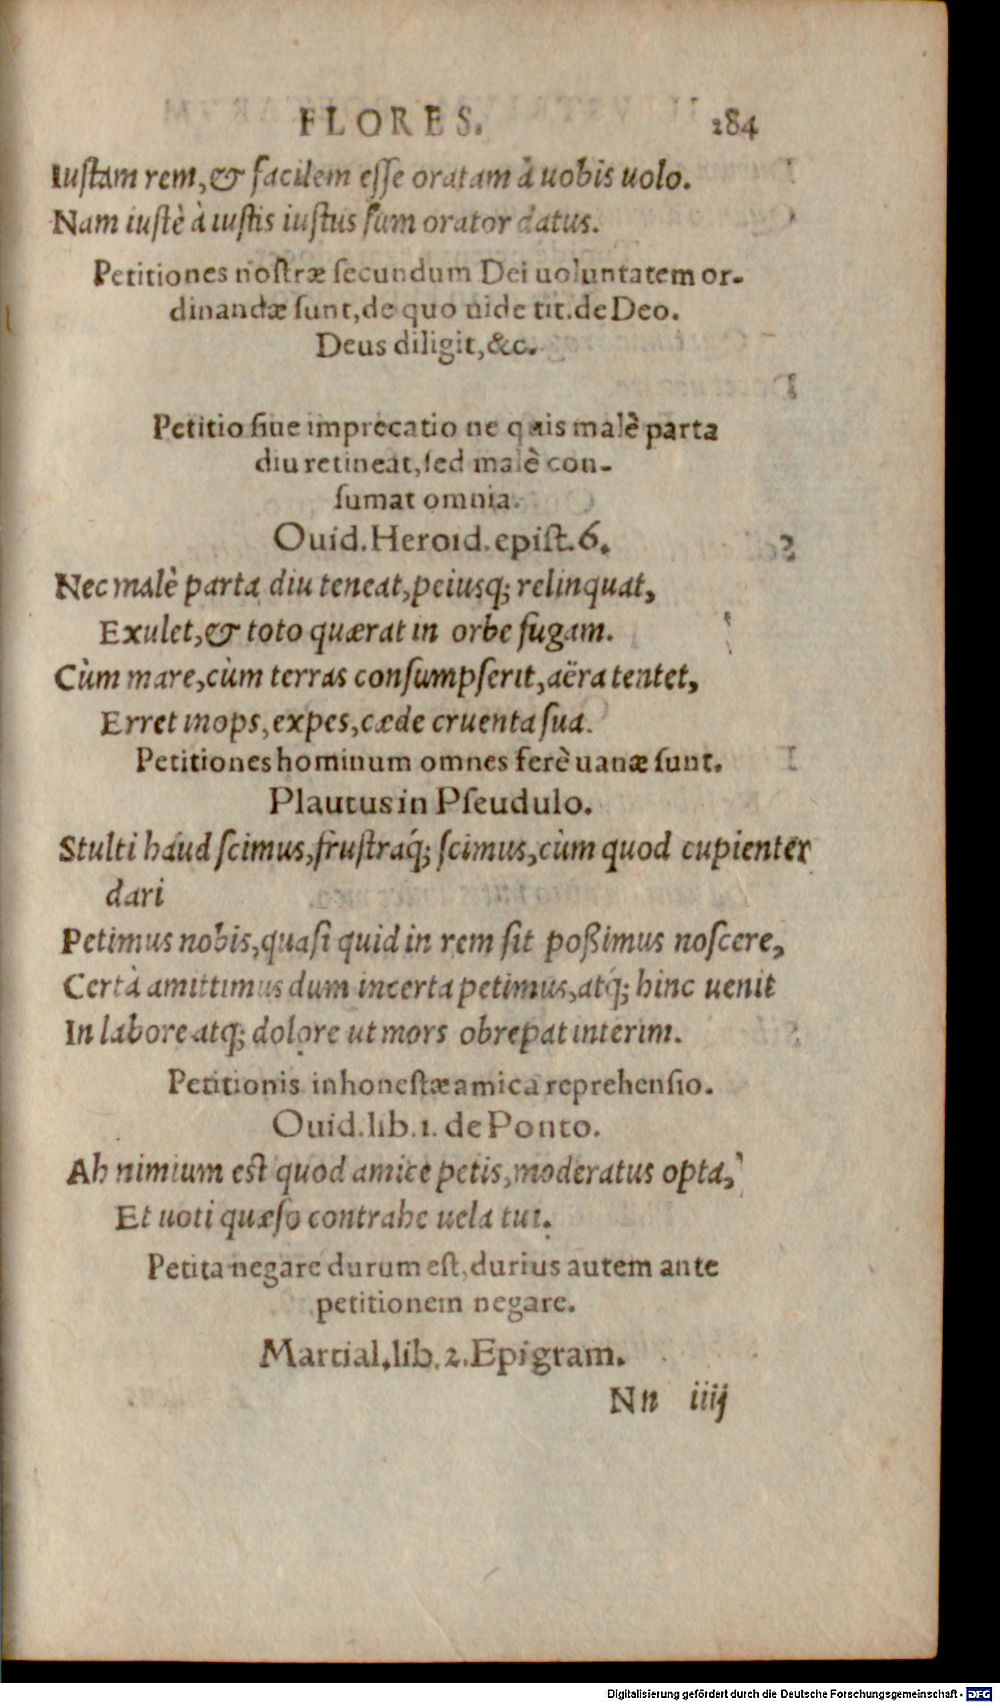 FLORES. 284
Iustam rem, & facilem esse oratam à uobis uolo.
Nam iustè à iustis iustus sum orator datus.
Petitiones nostræ secundum Dei uoluntatem or-
dinandæ sunt, de quo uide tit. de Deo.
Deus diligit, &c.
Petitio siue imprecatio ne quis malè parta
diu retineat, sed malè con-
sumat omnia.
Ouid. Heroid. epist. 6.
Nec malè parta diu teneat, peiusq; relinquat,
Exulet, & toto quærat in orbe fugam.
Cùm mare, cùm terras consumpserit, aëra tentet,
Erret inops, expes, cæde cruenta sua.
Petitiones hominum omnes ferè uanæ sunt.
Plautus in Pseudulo.
Stulti haud scimus, frustraq́; scimus, cùm quod cupienter
dari
Petimus nobis, quasi quid in rem sit poßimus noscere,
Certà amittimus dum incerta petimus, atq́; hinc uenit
In labore atq; dolore ut mors obrepat interim.
Petitionis inhonestæ amica reprehensio.
Ouid. lib. 1. de Ponto.
Ah nimium est quod amice petis, moderatus opta,
Et uoti quæso contrahe uela tui.
Petita negare durum est, durius autem ante
petitionem negare.
Martial. lib. 2. Epigram.
Nn iiij
Digitalisierung gefördert durch die Deutsche Forschungsgemeinschaft - DFG